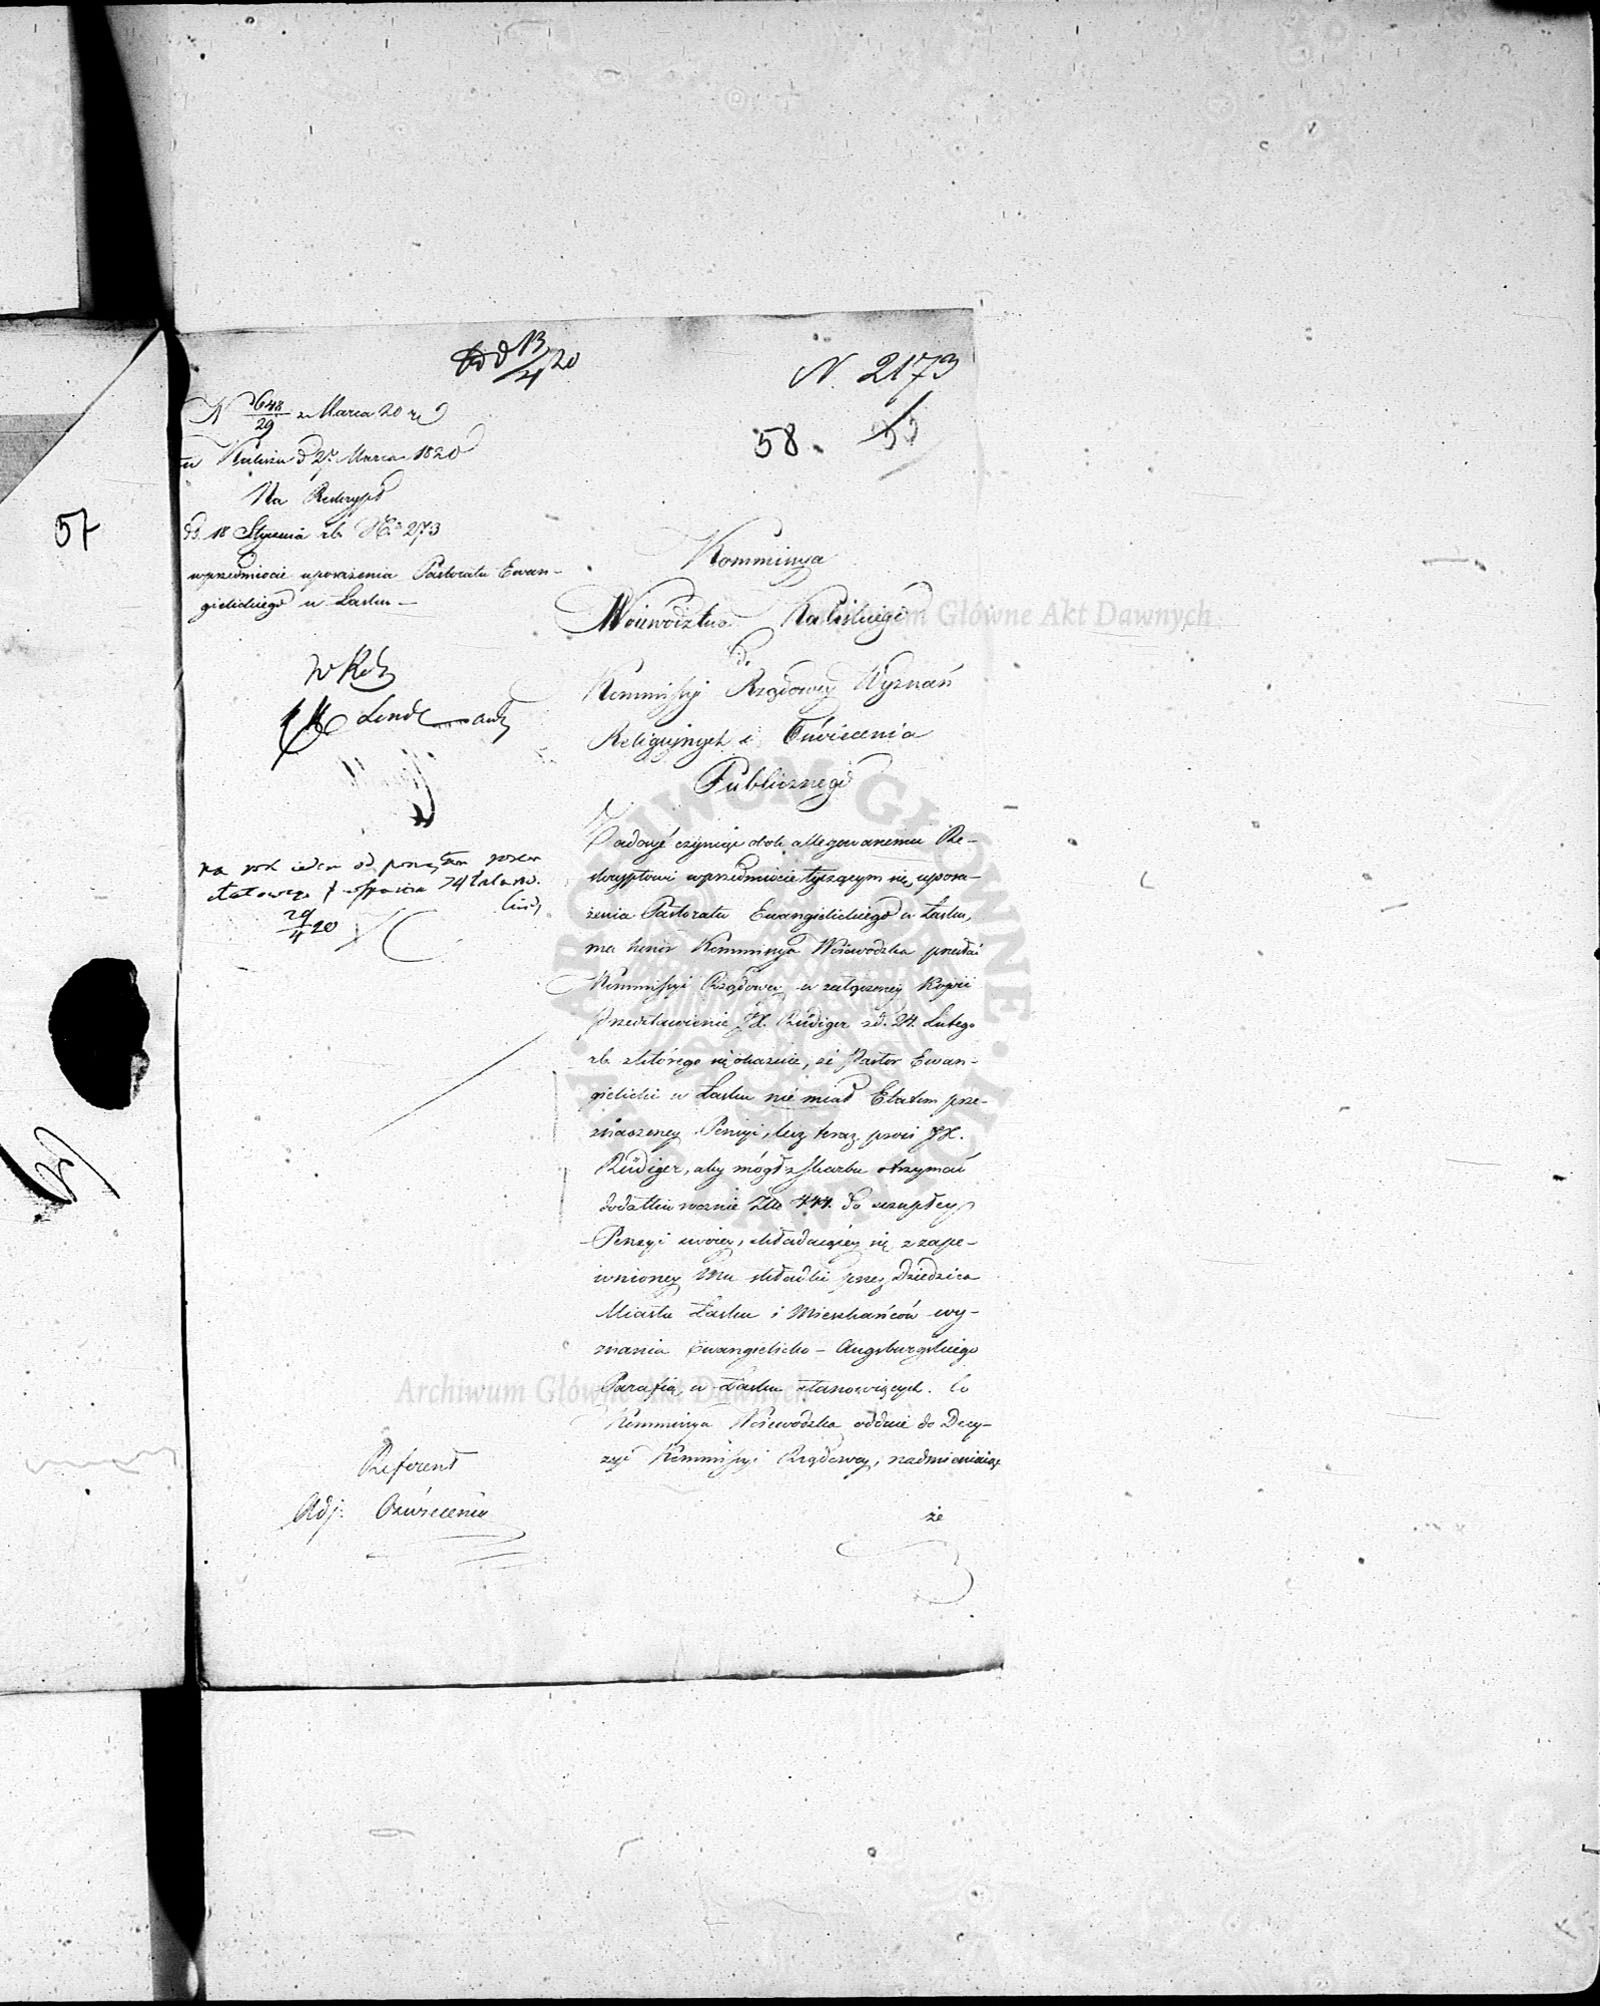 13/4 20
N. 2173
N 648/29 z Marca 20 r
58. 55
w Kaliszu d 27 Marca 1820
Na Reskrypt
57
d. 18 Stycznia rb. No 273
w przedmiocie uposażenia Pastoratu Ewan-
gielickiego w Łasku
Kommissya
Woiewództwa Kaliskiego
do
Kommissyi Rządowey Wyznań
Religijnych i Oświecenia
Publicznego
Linde
na rok ieden od
29/4 20
Linde
Zadosyć czyniąc obok allegowanemu Re-
skryptowi w przedmiocie tyczącym się uposa-
żenia Pastoratu Ewangielickiego w Łasku,
ma honor Kommissya Woiewódzka przesłać
Kommissyi Rządowey w załączoney Kopii
Przedstawienie JX. Rüdiger z d. 24. Lutego
rb. z którego się okazuie, że Pastor Ewan-
gielicki w Łasku nie miał Etatem prze-
znaczoney Pensyi, lecz teraz prosi JX.
Rüdiger, aby mógł z Skarbu otrzymać
dodatku rocznie Złp 444. do szczupłey
Pensyi swoiey, składaiącey się z zape-
wnioney Mu składki przez Dziedzica
Miasta Łasku i Mieszkańców wy-
znania Ewangielicko-Augsburgskiego
Parafią w Łasku stanowiących. Co
Kommissya Woiewódzka oddaie do Decy-
zyi Kommissyi Rządowey, nadmieniaiąc
że
Referent
Adj: Oświecenia
Archiwum Główne Akt Dawnych
Archiwum Główne Akt Dawnych
ARCHIWUM GŁÓWNE AKT DAWNYCH